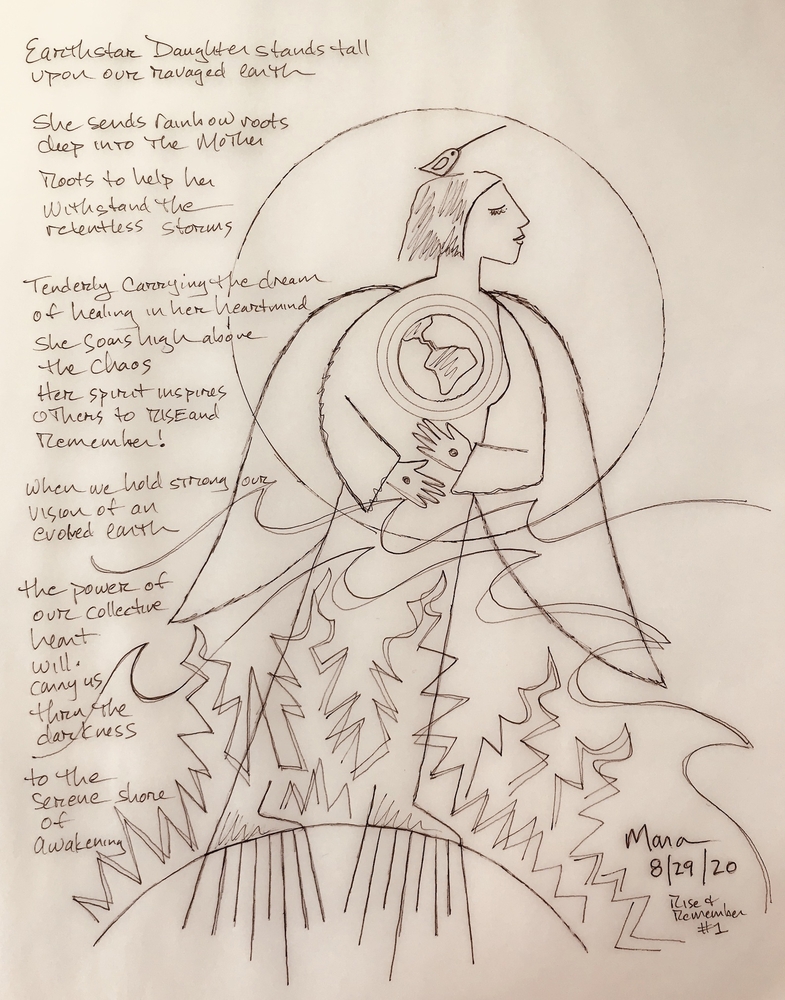 Earthstar Daughter stands tall
upon our ravaged earth
She sends rainbow roots
deep into The Mother
Roots to help her
withstand the
relentless storms
Tenderly Carrying the dream
of healing in her heartmind
She soars high above
the chaos
Her spirit inspires
oThers to RISE and
Remember!
when we hold strong our
vision of an
evolved earth
the power of
our collective
heart
will.
carry us
thru the
darkness
to the
serene shore
of
awakening
Mara
8/29/20
Rise &
Remember
#1